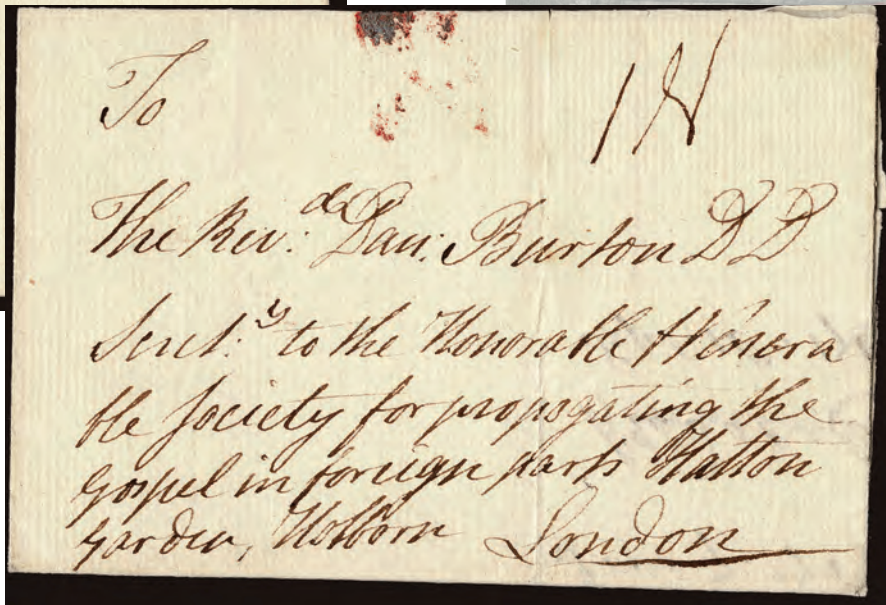 To
1N
The Rev:d Dan: Burton DD
Secret:y to the Honorable & Venera
ble Society for propogating the
Gospel in foreign parts Hatton
Garden, Holborn London